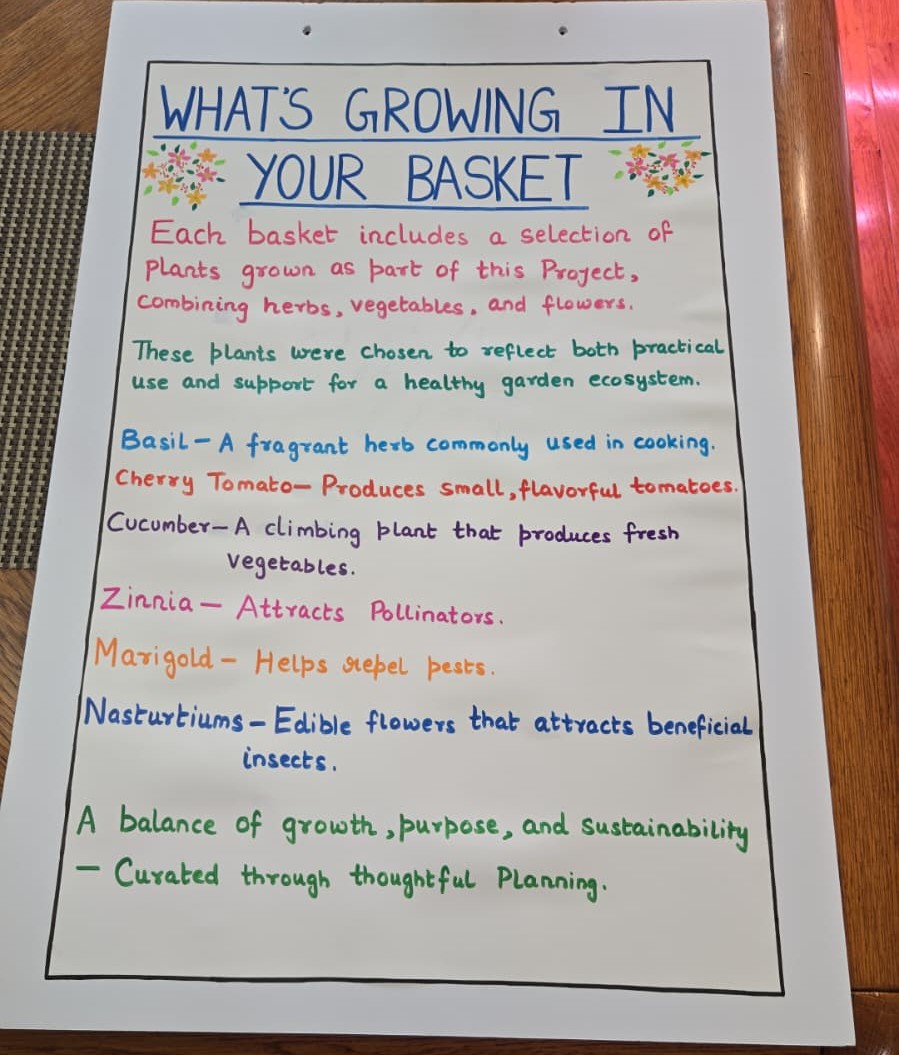 WHAT'S GROWING IN
YOUR BASKET
Each basket includes a selection of
Plants grown as part of this Project,
Combining herbs, vegetables, and flowers.
These plants were chosen to reflect both practical
use and support for a healthy garden ecosystem.
Basil - A fragrant herb commonly used in cooking.
Cherry Tomato - Produces small, flavorful tomatoes.
Cucumber - A climbing plant that produces fresh
vegetables.
Zinnia - Attracts Pollinators.
Marigold - Helps repel pests.
Nasturtiums - Edible flowers that attracts beneficial
insects.
A balance of growth, purpose, and sustainability
- Curated through thoughtful Planning.